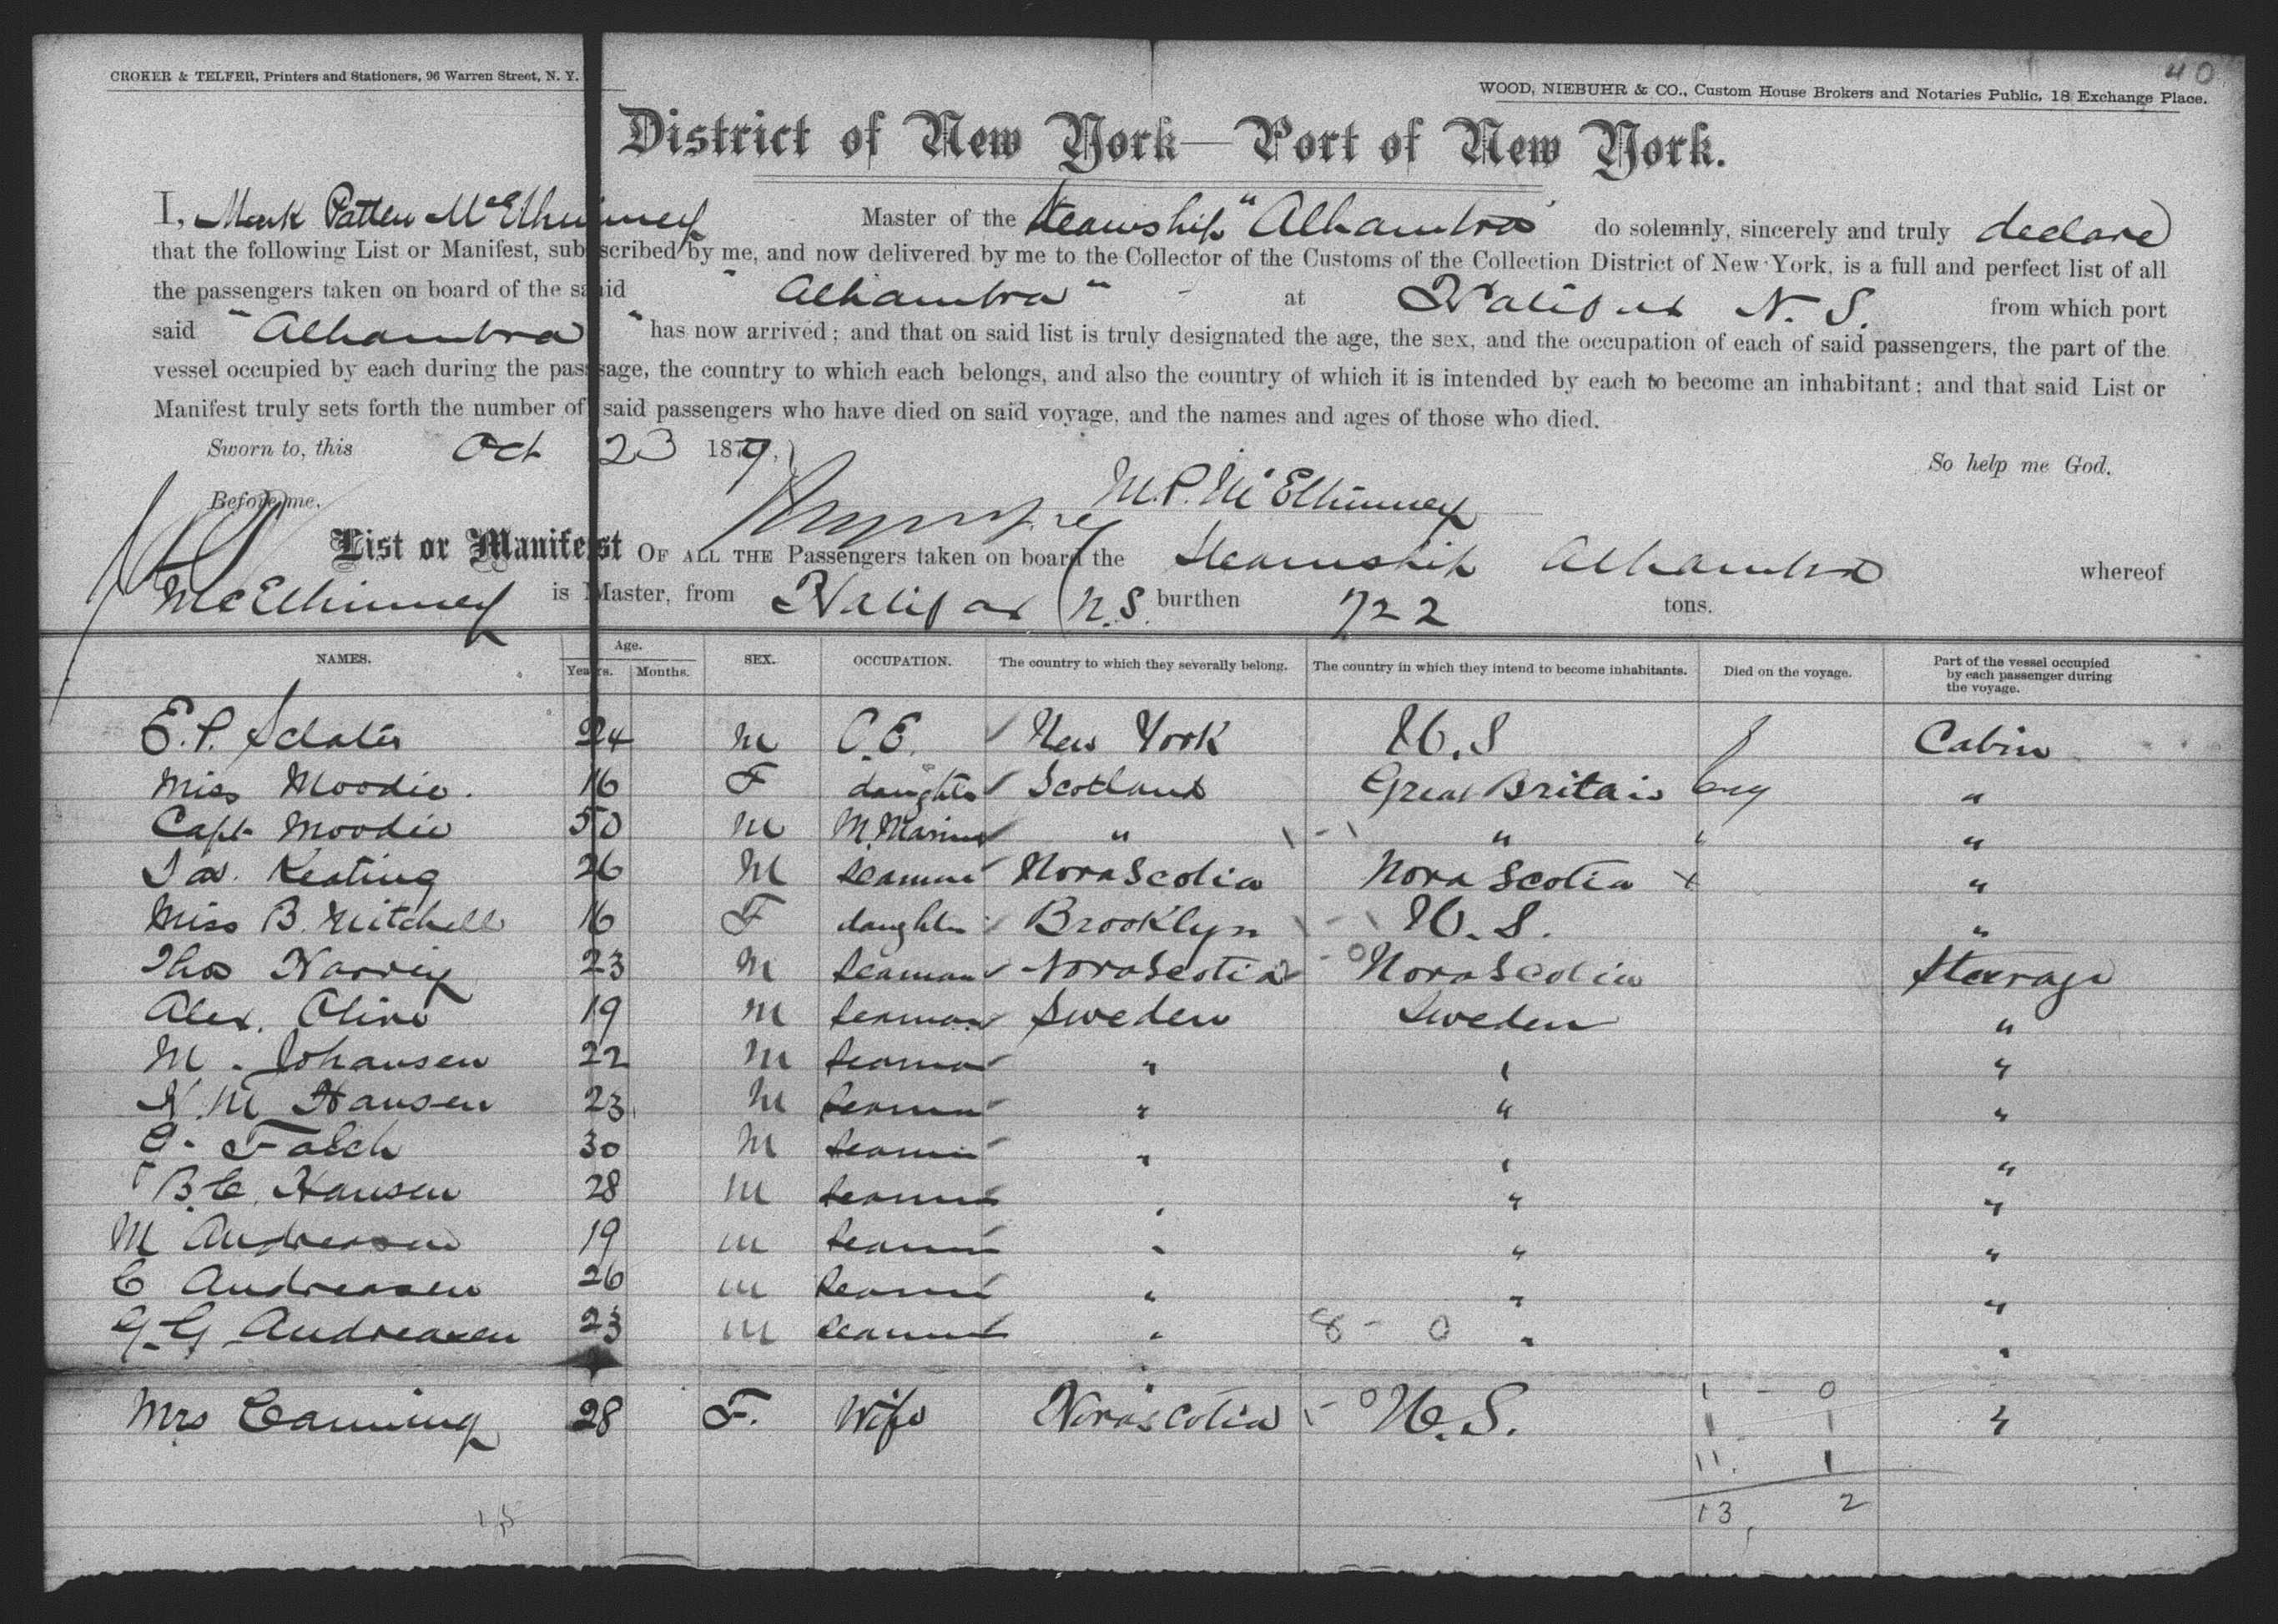 40
CROKER & TELFER, Printers and Stationers, 96 Warren Street, N. Y.
WOOD, NIEBUHR & CO., Custom House Brokers and Notaries Public, 18 Exchange Place.
District of New York—Port of New York.
I, Mark Patten McElhinney Master of the Steamship "Alhambra" do solemnly, sincerely and truly declare
that the following List or Manifest, subscribed by me, and now delivered by me to the Collector of the Customs of the Collection District of New York, is a full and perfect list of all
the passengers taken on board of the said "Alhambra" at Halifax N. S. from which port
said "Alhambra" has now arrived; and that on said list is truly designated the age, the sex, and the occupation of each of said passengers, the part of the
vessel occupied by each during the passage, the country to which each belongs, and also the country of which it is intended by each to become an inhabitant; and that said List or
Manifest truly sets forth the number of said passengers who have died on said voyage, and the names and ages of those who died.
Sworn to, this Oct 23 1879, So help me God.
Before me. M.P. McElhinney
List or Manifest OF ALL THE Passengers taken on board the Steamship Alhambra whereof
McElhinney is Master, from Halifax N.S. burthen 722 tons.
NAMES. Age. Years. Months. SEX. OCCUPATION. The country to which they severally belong. The country in which they intend to become inhabitants. Died on the voyage. Part of the vessel occupied by each passenger during the voyage.
E. P. 24 M C. E. New York U. S Cabin
Miss Moodie. 16 F daughter Scotland Great Britain "
Capt Moodie 50 M M. Marine " " "
Jas. Keating 26 M Seaman Nova Scotia Nova Scotia "
Miss B. Mitchell 16 F daughter Brooklyn U. S. "
Thos Harvey 23 M Seaman Nova Scotia Nova Scotia Steerage
Alex. 19 M Seaman Sweden Sweden "
M. Johansen 22 M Seaman " " "
H. M Hansen 23 M Seaman " " "
G. Falch 30 M Seaman " " "
B. C. Hansen 28 M Seaman " " "
M Andreasen 19 M Seaman " " "
C Andreasen 26 M Seaman " " "
G. G Andreasen 23 M Seaman " 8 - 0 " "
Mrs Canning 28 F. Wife Nova Scotia U. S. "
1 - 0
1 1
11. 1
15 13 2